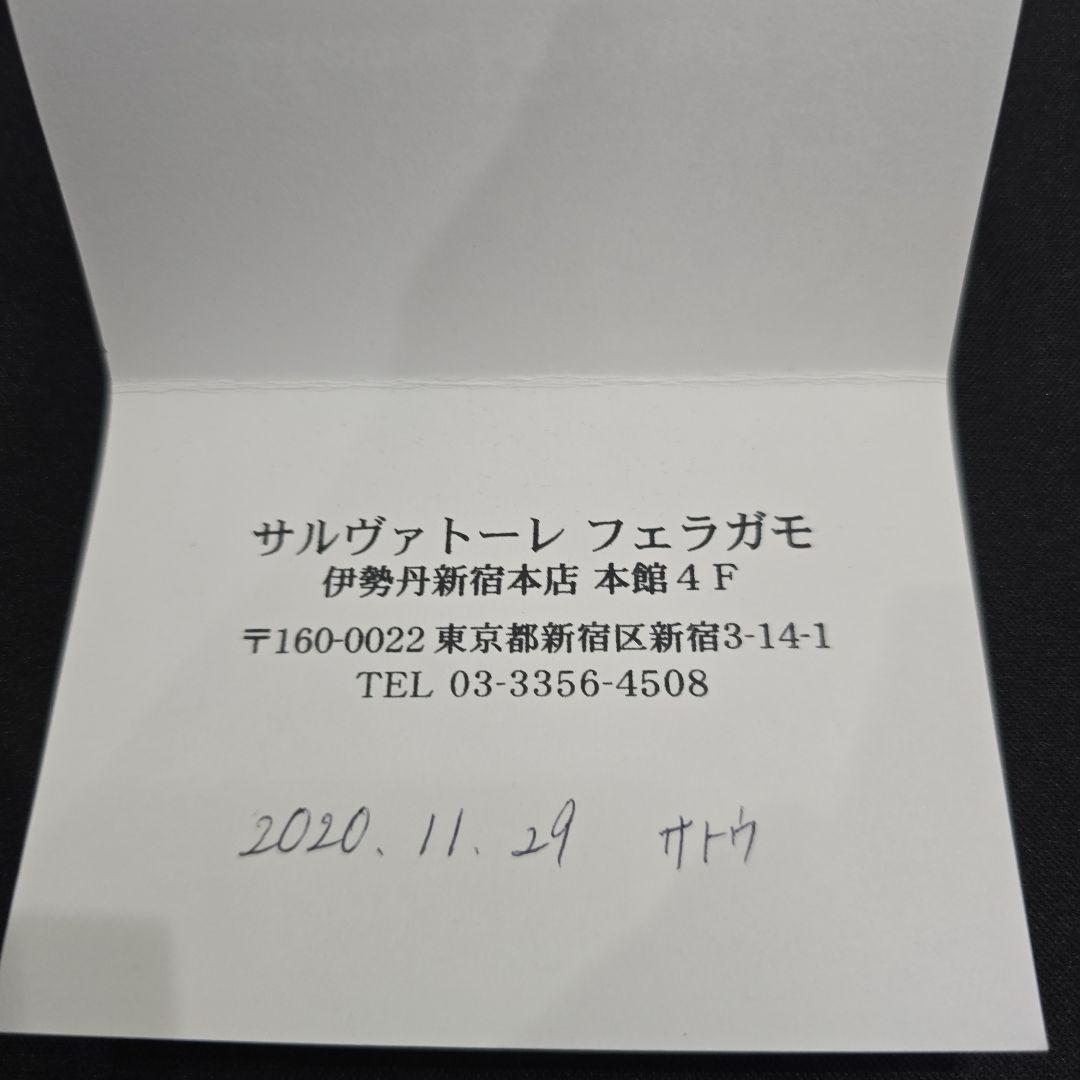 サルヴァトーレ フェラガモ
伊勢丹新宿本店 本館4F
〒160-0022 東京都新宿区新宿3-14-1
TEL 03-3356-4508
2020. 11. 29 サトウ